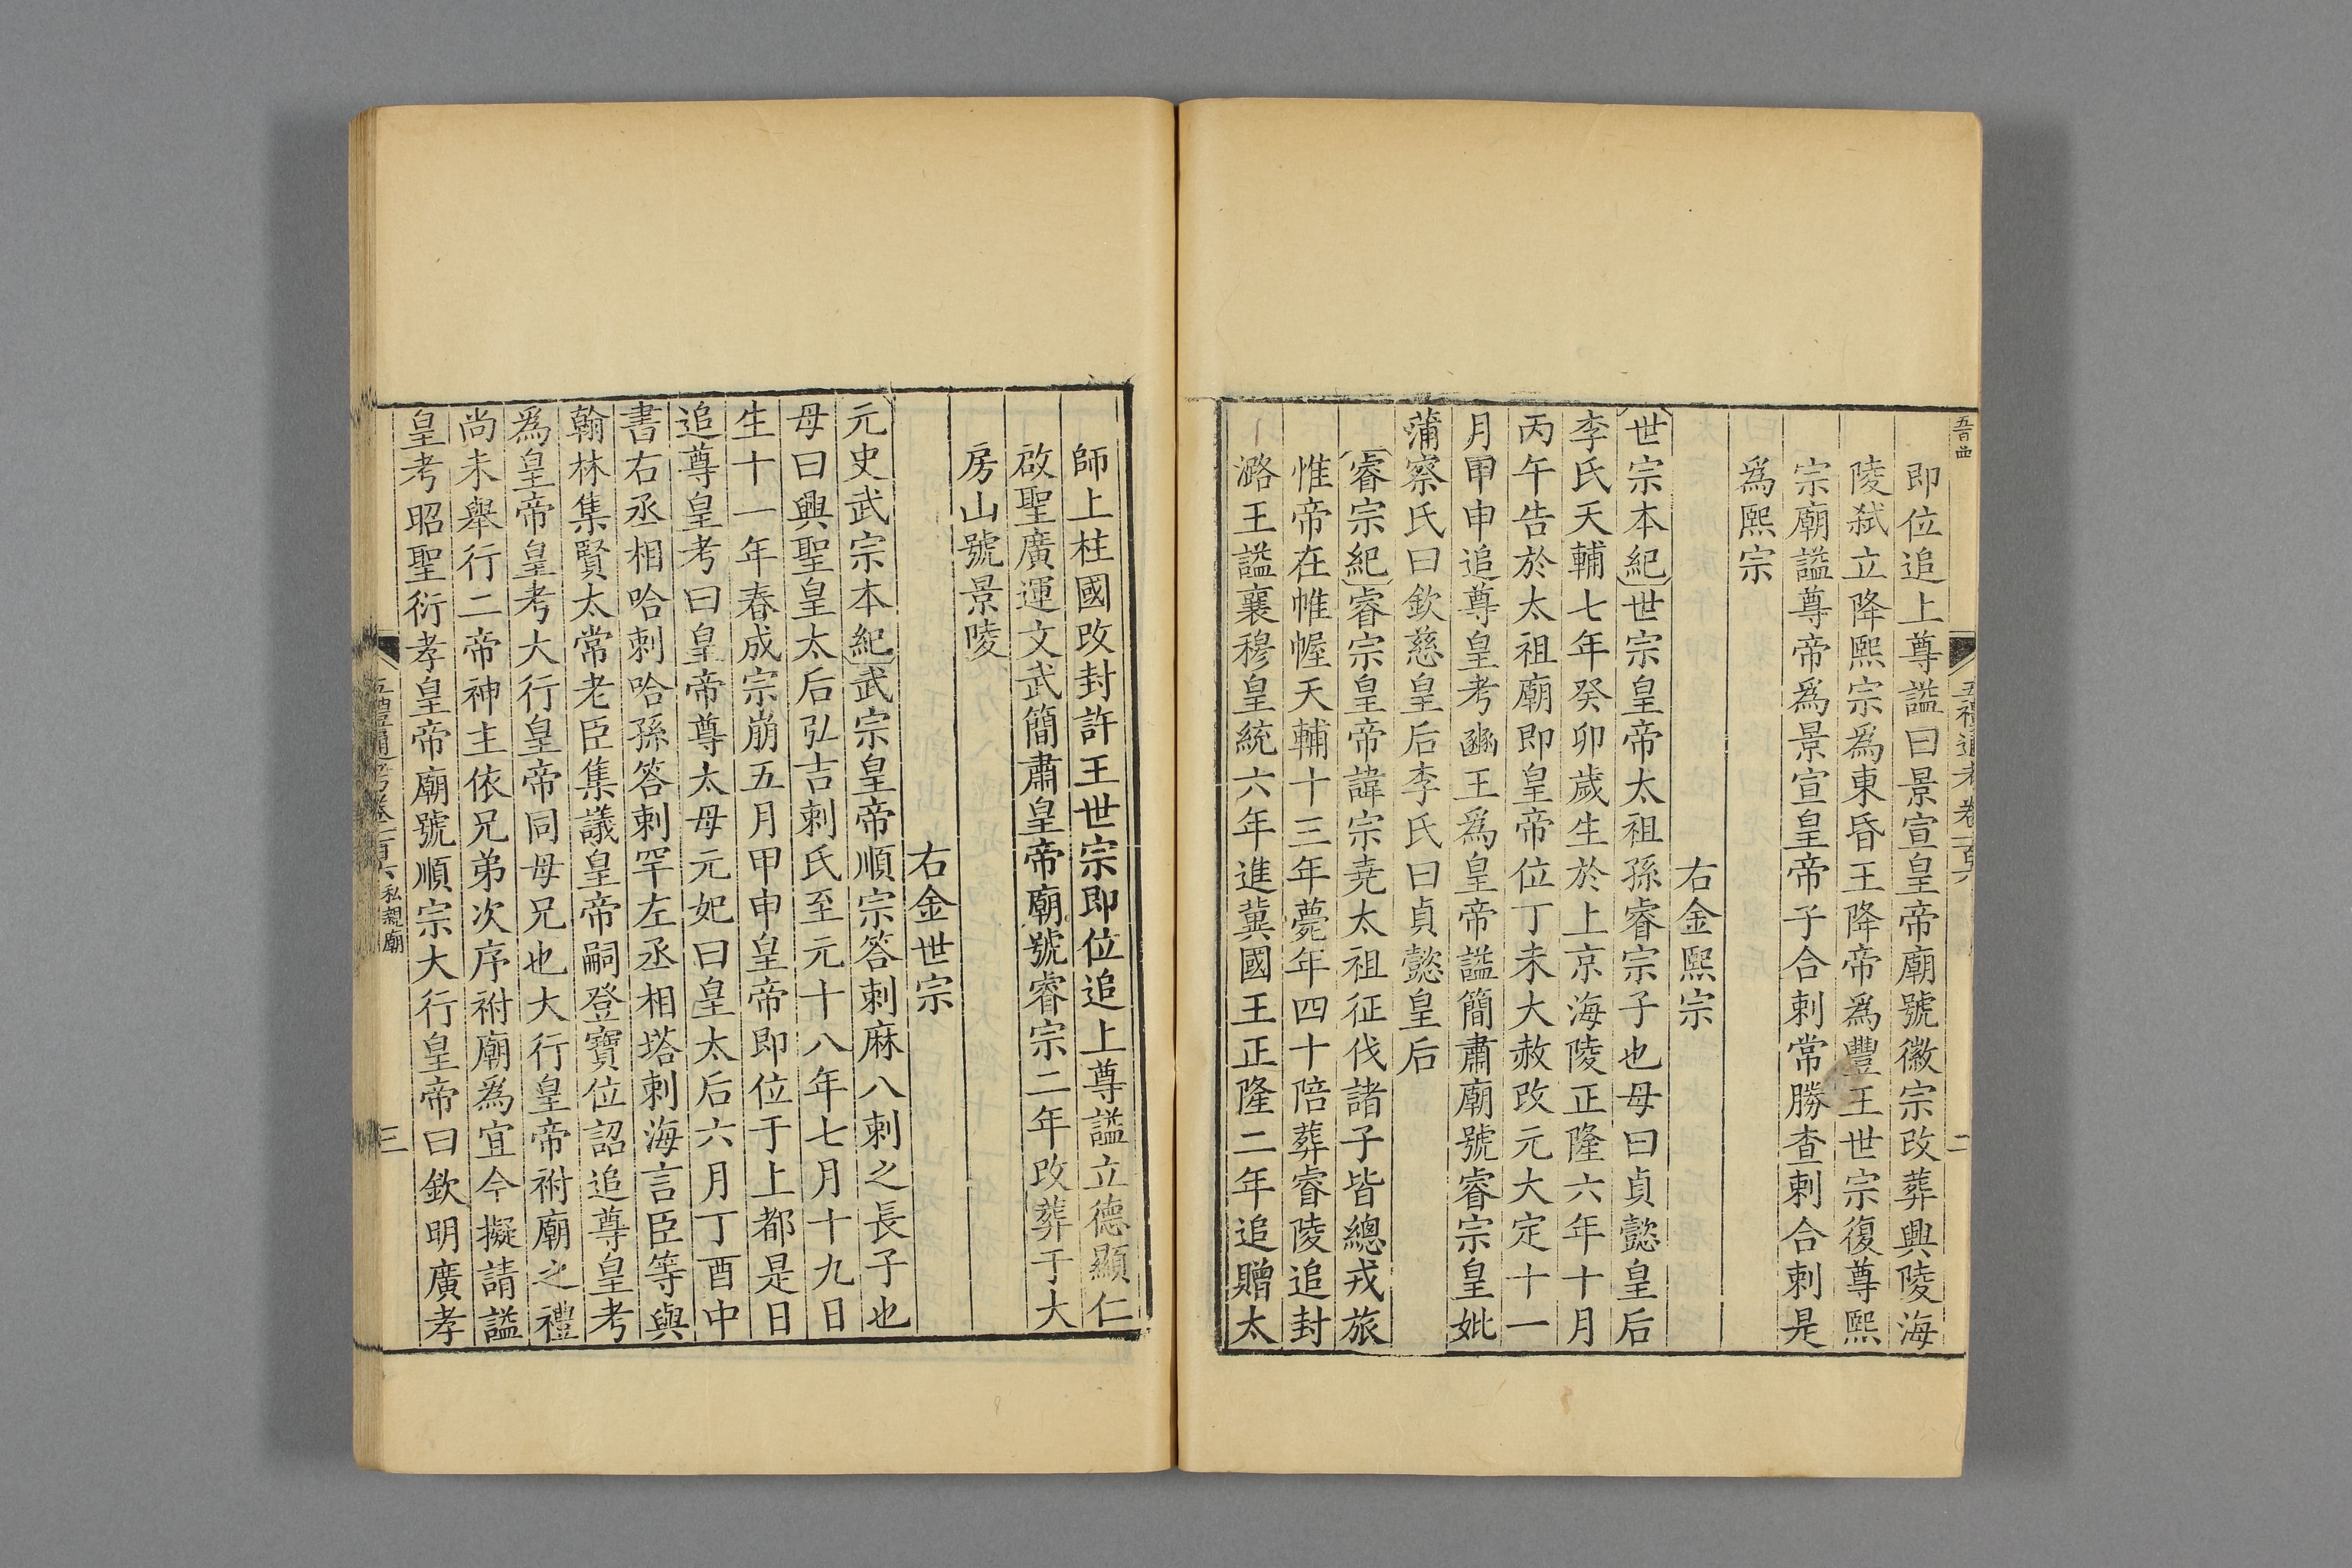 五禮通考卷一百六
二
即位追上尊諡曰景宣皇帝廟號徽宗改葬興陵海
陵弑立降熙宗爲東昏王降帝爲豐王世宗復尊熙
宗廟諡尊帝爲景宣皇帝子合剌常勝查剌合剌是
爲熙宗
右金熙宗
世宗本紀世宗皇帝太祖孫睿宗子也母曰貞懿皇后
李氏天輔七年癸卯歲生於上京海陵正隆六年十月
丙午告於太祖廟即皇帝位丁未大赦改元大定十一
月甲申追尊皇考豳王爲皇帝諡簡肅廟號睿宗皇妣
蒲察氏曰欽慈皇后李氏曰貞懿皇后
睿宗紀睿宗皇帝諱宗堯太祖征伐諸子皆總戎旅
惟帝在帷幄天輔十三年薨年四十陪葬睿陵追封
潞王諡襄穆皇統六年進冀國王正隆二年追贈太
師上柱國改封許王世宗即位追上尊諡立德顯仁
啟聖廣運文武簡肅皇帝廟號睿宗二年改葬于大
房山號景陵
右金世宗
元史武宗本紀武宗皇帝順宗答剌麻八剌之長子也
母曰興聖皇太后弘吉剌氏至元十八年七月十九日
生十一年春成宗崩五月甲申皇帝即位于上都是日
追尊皇考曰皇帝尊太母元妃曰皇太后六月丁酉中
書右丞相哈剌哈孫答剌罕左丞相塔剌海言臣等與
翰林集賢太常老臣集議皇帝嗣登寶位詔追尊皇考
爲皇帝皇考大行皇帝同母兄也大行皇帝祔廟之禮
尚未舉行二帝神主依兄弟次序祔廟爲宜今擬請諡
皇考昭聖衍孝皇帝廟號順宗大行皇帝曰欽明廣孝
五禮通考卷一百六 私親廟
三